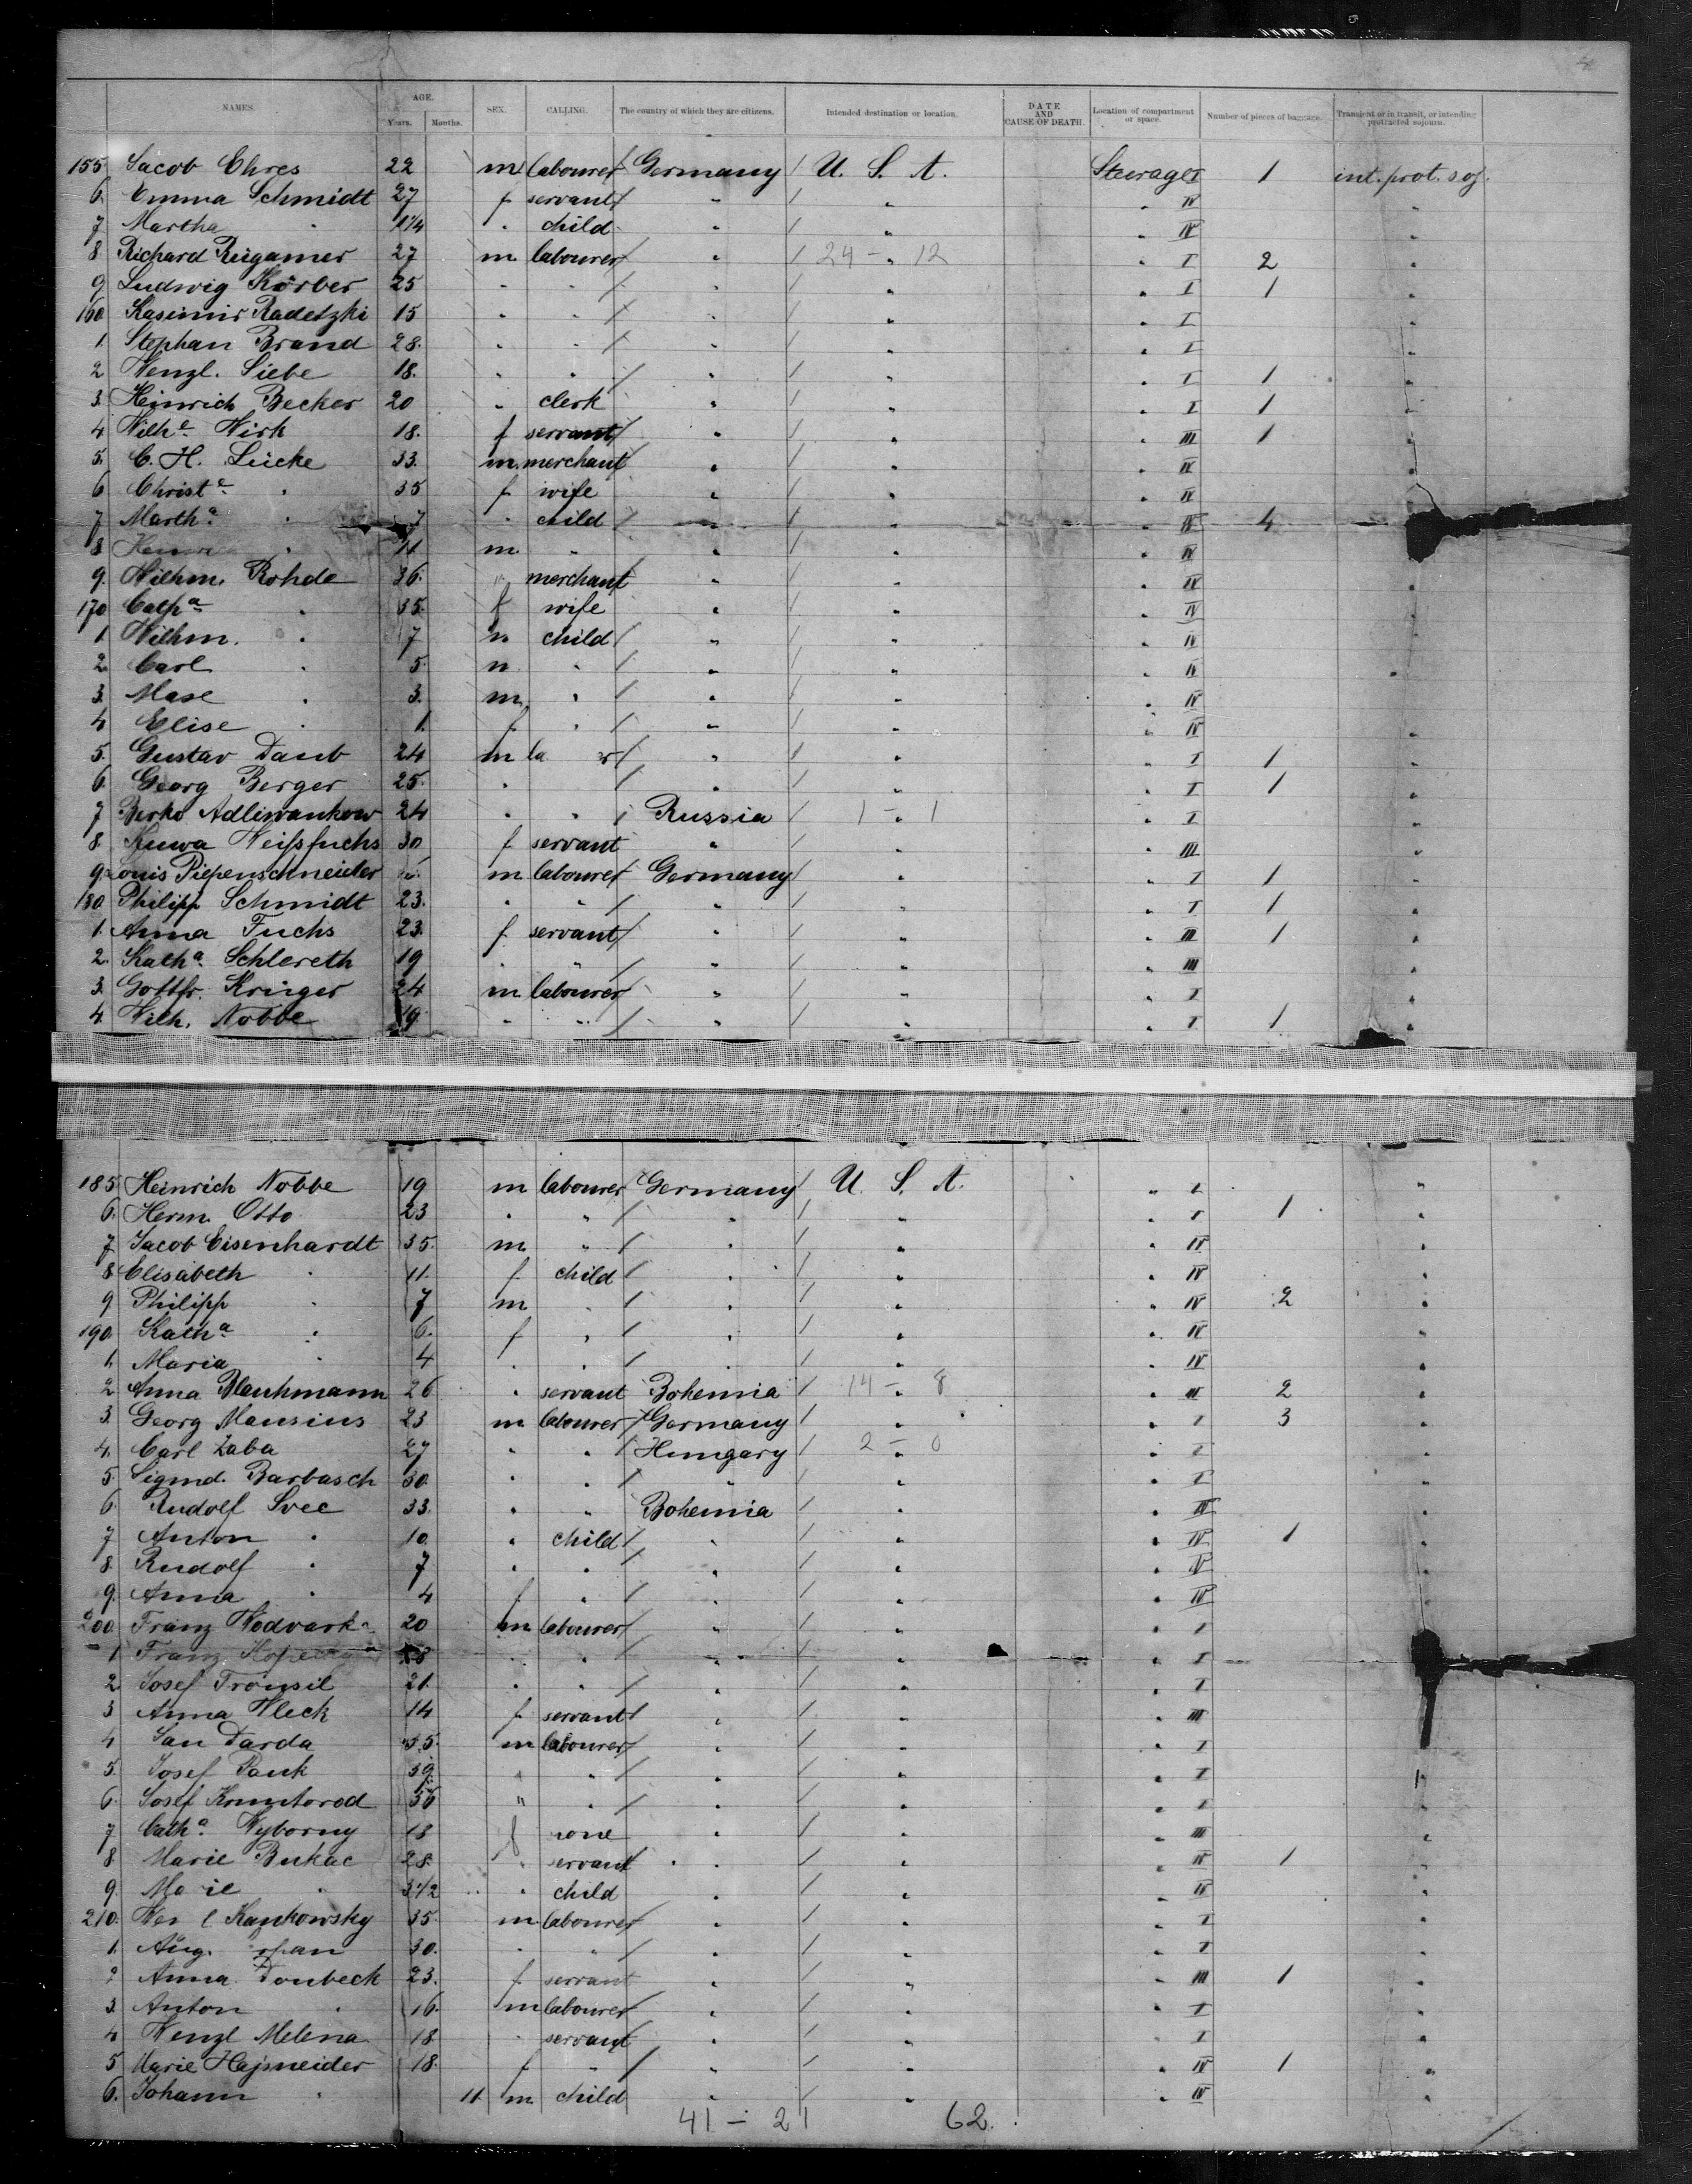 4
NAMES. AGE. Years. Months. SEX. CALLING. The country of which they are citizens. Intended destination or location. DATE AND CAUSE OF DEATH. Location of compartment or space. Number of pieces of baggage. Transient or in transit, or intending protracted sojourn.
155 Jacob Ehres 22 m labourer / Germany / U. S. A. Steerage I 1 int. prot. soj.
6. Emma Schmidt 27 f servant / " / " " IV "
7 Martha " 1 1/4 " child " / " " IV "
8 Richard Rügamer 27 m labourer / " / 24 - 12 " I 2 "
9 Ludwig Körber 25 " " / " / " " I 1 "
160 Kasimir Radetzki 15 " " / " / " " I "
1. Stephan Brand 28. " " / " / " " I "
2 Wenzl. Siebe 18. " " / " / " " I 1 "
3. Heinrich Becker 20 " clerk " / " " I 1 "
4 Wilhe. Wirk 18. f servant / " / " " III 1 "
5. C. H. Lücke 33. m. merchant " / " " IV "
6 Christe. " 35 f wife " / " " IV "
7 Martha. " 7 " child / " / " " IV 4
8 " 11 m. " " / " " IV
9. Wilhm. Rohde 36. " merchant " / " " IV "
170 Catha " 35. f wife " / " " IV "
1. Wilhm. " 7 m child / " / " " IV "
2. Carl " 5. m " / " / " " IV "
3. Max " 3. m. " / " / " " IV
4 Elise " 1. f " / " / " " IV "
5. Gustav Daub 24 m la r / " / " " I 1 "
6. Georg Berger 25. " / " / " " I 1 "
7 Berko Adliwankow 24 " " / Russia / 1 - 1 " I "
8. Weifsfuchs 30 f servant " / " " III "
9. Louis Piepenschneider m labourer / Germany / " " I 1 "
180 Philipp Schmidt 23. " " / " / " " I 1 "
1. Anna Fuchs 23. f servant / " / " " III 1 "
2. Katha. Schlereth 19 " " / " / " " III "
3. Gottfr. Krüger 24 m labourer / " / " " I "
4. Wilh. Nobbe 19. " " / " / " " I 1 "
185. Heinrich Nobbe 19 m labourer Germany / U. S. A. " I "
6. Herm. Otto 23 " " / " / " " I 1 "
7 Jacob Eisenhardt 35. m " / " / " " IV "
8. Elisabeth " 11. f child / " / " " IV "
9 Philipp " 7 m " / " / " " IV 2 "
190. Katha " 6. f " / " / " " IV "
1. Maria " 4 " " / " / " " IV "
2 Anna Blauhmann 26 " servant Bohemia / 14 - 8 " III 2 "
3. Georg Mansius 23 m labourer / Germany / " " I 3 "
4. Carl Zaba 27 " " / Hungary / 2 - 0 " I "
5. Sigmd. Barbasch 30. " " / " / " " I "
6. Rudolf Svec 33. " " Bohemia / " " IV "
7 Anton " 10. " child / " / " " IV 1 "
8. Rudolf " 7 " " / " / " " IV "
9. Anna " 4 f " / " / " " IV "
200 Franz Wodvarka 20 m labourer / " / " " I
1 Franz " " / " / " " I
2. Josef Tronsil 21. " " / " / " " I
3 Anna Vleck 14 f servant / " / " " III
4 Jan Darda 35. m labourer / " / " " I "
5. Josef Pauk 59 " " / " / " " I
6. Josef 56 " " / " / " " I "
7 Catha. Wyborny 18 f none " / " " III "
8. Marie Bukac 28. " servant " / " " IV 1 "
9. Ma ie " 3 1/2 " child " / " " IV "
210. Wen l Kankowsky 35. m. labourer / " / " " I "
1. Aug. 30. " " / " / " " I "
2 Anna Doubeck 23. f servant " / " " III 1 "
3. Anton " 16. m labourer / " / " " I "
4 Wenzl Melena 18. " servant " / " " I "
5. Marie Hajsneider 18. f " / " / " " IV 1 "
6. Johann " 11 m child " / " " IV "
41 - 21 62.